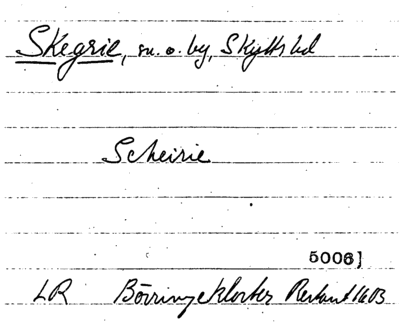 Skegrie, sn. o. by, Skytts hd
Scheirie
5006]
LR Börringekloster